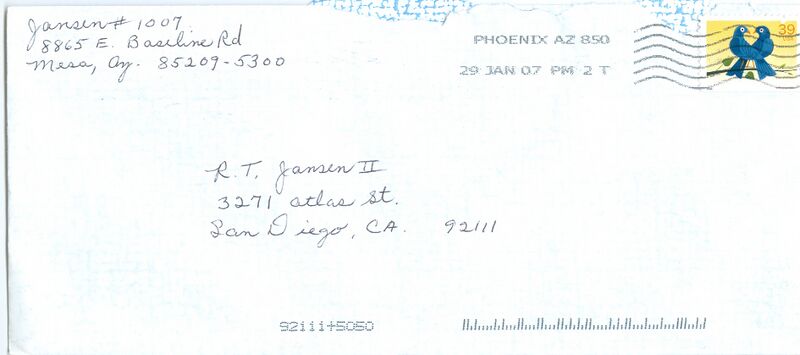 Jansen # 1007
8865 E. Baseline Rd
Mesa, Az. 85209-5300
PHOENIX AZ 850
29 JAN 07 PM 2 T
39
R. T. Jansen II
3271 Atlas St.
San Diego, CA. 92111
92111+5050